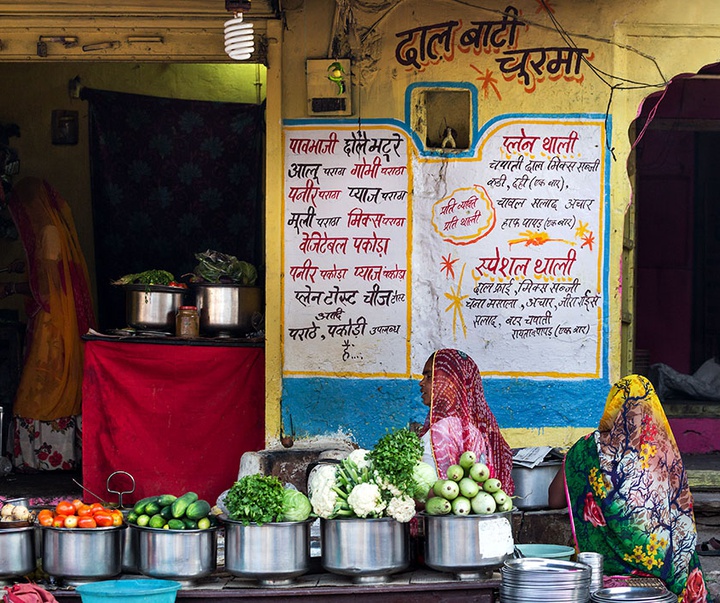 दाल बाटी
चूरमा
पावभाजी छोलेभटूरे
आलू पराठा गोभी पराठा
पनीर पराठा प्याज पराठा
मूली पराठा मिक्स पराठा
वेजिटेबल पकोड़ा
पनीर पकोड़ा प्याज पकोड़ा
प्लेन टोस्ट चीज टोस्ट
आदि
पराठे, पकोड़ी उपलब्ध
है....
प्लेन थाली
चपाती दाल मिक्स सब्जी
कढ़ी, दही (एक बार),
चावल सलाद अचार
हाफ पापड़ (एक बार)
प्रति व्यक्ति
प्रति थाली
स्पेशल थाली
दाल फ्राई, मिक्स सब्जी
चना मसाला, अचार, जीरा राईस
सलाद, बटर चपाती
रायता पापड़ (एक बार)